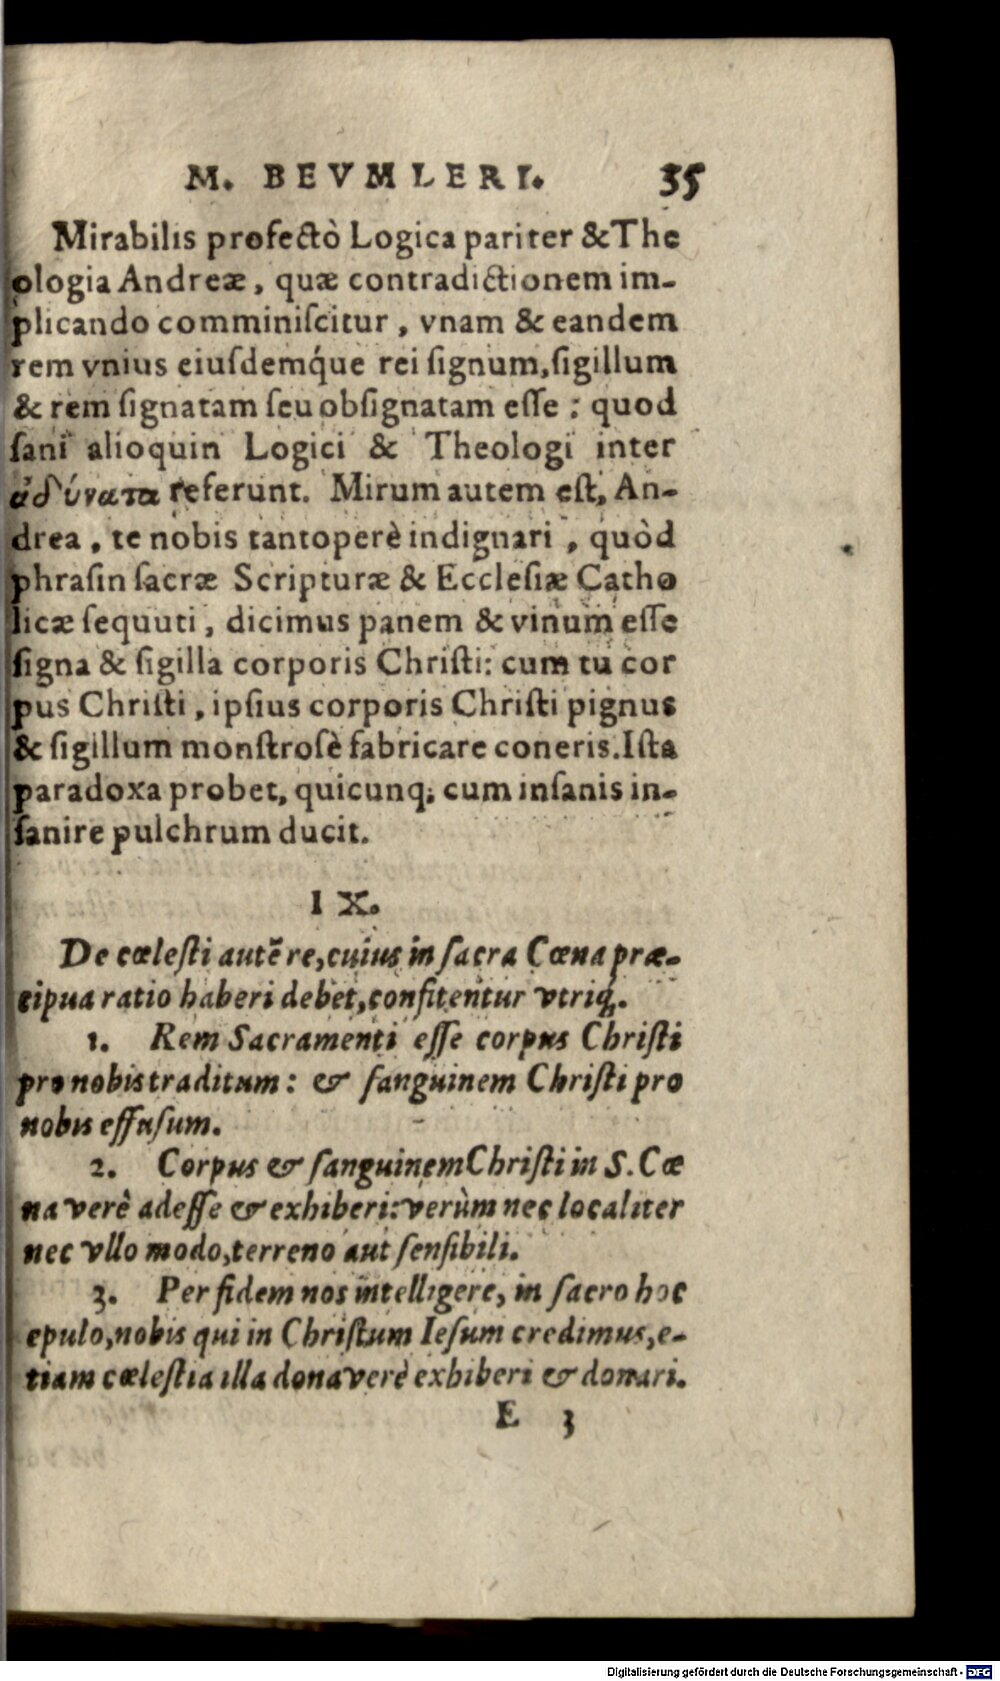 M. BEVMLERI. 35
Mirabilis profectò Logica pariter &The
ologia Andreæ, quæ contradictionem im-
plicando comminiſcitur, vnam & eandem
rem vnius eiuſdemq́ue rei ſignum, ſigillum
& rem ſignatam ſeu obſignatam eſſe: quod
ſani alioquin Logici & Theologi inter
ἀδύνατα referunt. Mirum autem eſt, An-
drea, te nobis tantoperè indignari, quòd
phraſin ſacræ Scripturæ & Eccleſiæ Catho
licæ ſequuti, dicimus panem & vinum eſſe
ſigna & ſigilla corporis Chriſti: cum tu cor
pus Chriſti, ipſius corporis Chriſti pignus
& ſigillum monſtroſè fabricare coneris. Iſta
paradoxa probet, quicunq; cum inſanis in-
ſanire pulchrum ducit.
IX.
De cœleſti autẽ re, cuius in ſacra Cœna præ-
cipua ratio haberi debet, confitentur vtriq.
1. Rem Sacramenti eſſe corpus Chriſti
pro nobis traditum: & ſanguinem Chriſti pro
nobis effuſum.
2. Corpus & ſanguinem Chriſti in S. Cœ
na verè adeſſe & exhiberi: verùm nec localiter
nec vllo modo, terreno aut ſenſibili.
3. Per fidem nos intelligere, in ſacro hoc
epulo, nobis qui in Chriſtum Ieſum credimus, e-
tiam cœleſtia illa dona verè exhiberi & donari.
E 3
Digitalisierung gefördert durch die Deutsche Forschungsgemeinschaft - DFG